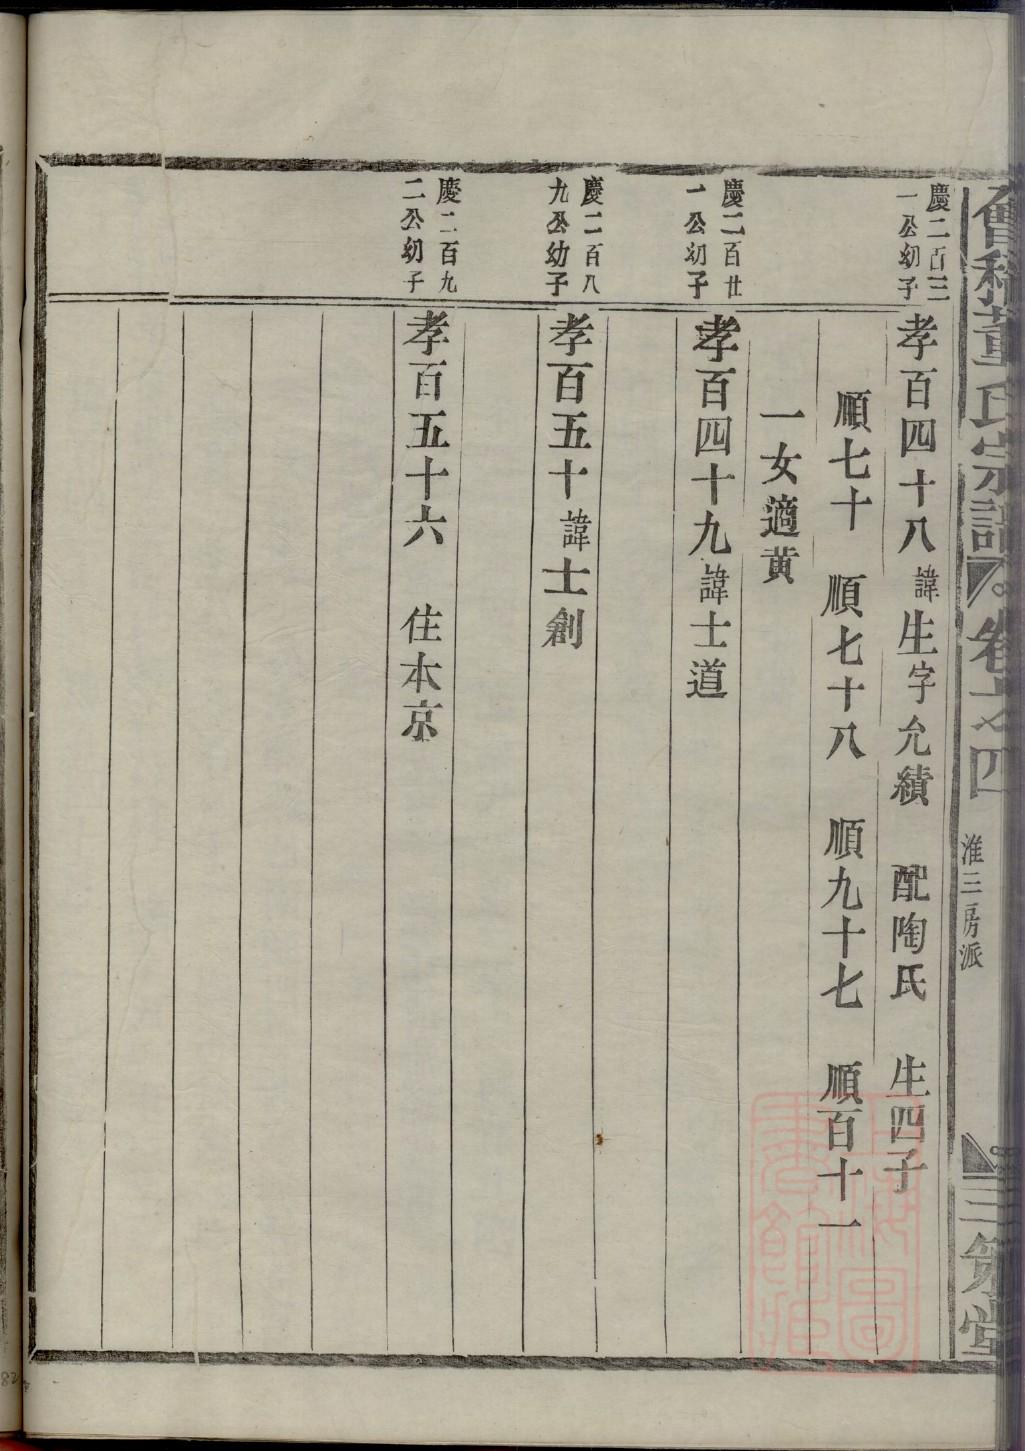 會稽董氏宗譜 卷之四 淮三房派 三策堂
慶二百三
一公幼子
孝百四十八 諱生字允績 配陶氏 生四子
順七十 順七十八 順九十七 順百十一
一女適黄
慶二百廿
一公幼子
孝百四十九 諱士道
慶二百八
九公幼子
孝百五十 諱士創
慶二百九
二公幼子
孝百五十六 住本京
上海圖書館藏
82